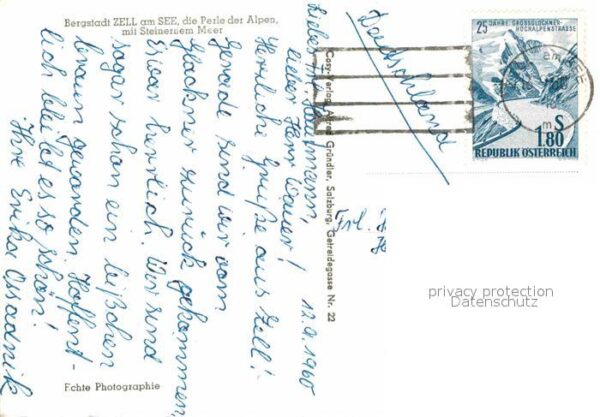 Bergstadt ZELL am SEE, die Perle der Alpen,
mit Steinernem Meer
12.9.1960
Liebes Frl. Kaufmann,
lieber Herr Wauer!
Herzliche Grüße aus Zell!
Gerade sind wir vom
Glockner zurück gekommen
Es war herrlich. Wir sind
sogar schon ein bißchen
braun geworden. Hoffent-
lich bleibt es so schön!
Ihre Erika Ossadnik
Echte Photographie
Cosy-Verlag Alfred Gründler, Salzburg, Getreidegasse Nr. 22
Deutschland
Frl.
25 JAHRE GROSSGLOCKNER-
HOCHALPENSTRASSE
S
1.80
REPUBLIK ÖSTERREICH
privacy protection
Datenschutz